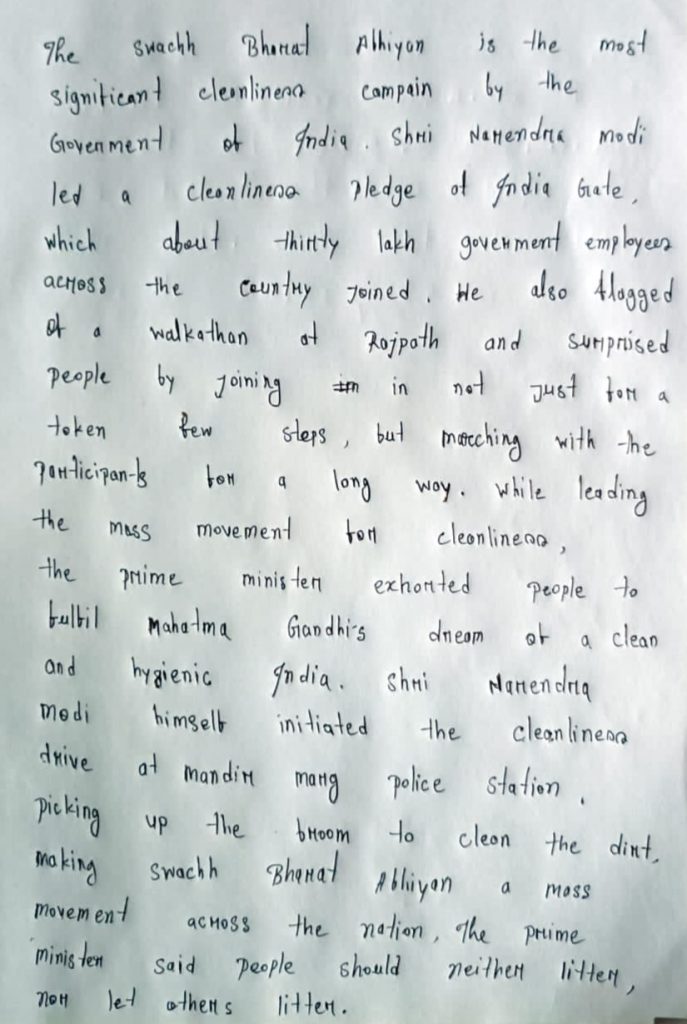 The swachh Bharat Abhiyan is the most
significant cleanliness campain by the
Goverment of India. Shri Narendra modi
led a cleanliness pledge at India Gate,
which about thirty lakh goverment employees
across the country joined. He also flagged
of a walkathan at Rajpath and surprised
people by joining in not just for a
token few steps, but marching with the
participants for a long way. While leading
the mass movement for cleanliness,
the prime minister exhorted people to
fulfil Mahatma Gandhi's dream of a clean
and hygienic India. Shri Narendra
modi himself initiated the cleanliness
drive at mandir marg police station.
picking up the broom to clean the dirt,
making swachh Bharat Abhiyan a mass
movement across the nation, The prime
minister said people should neither litter,
nor let others litter.